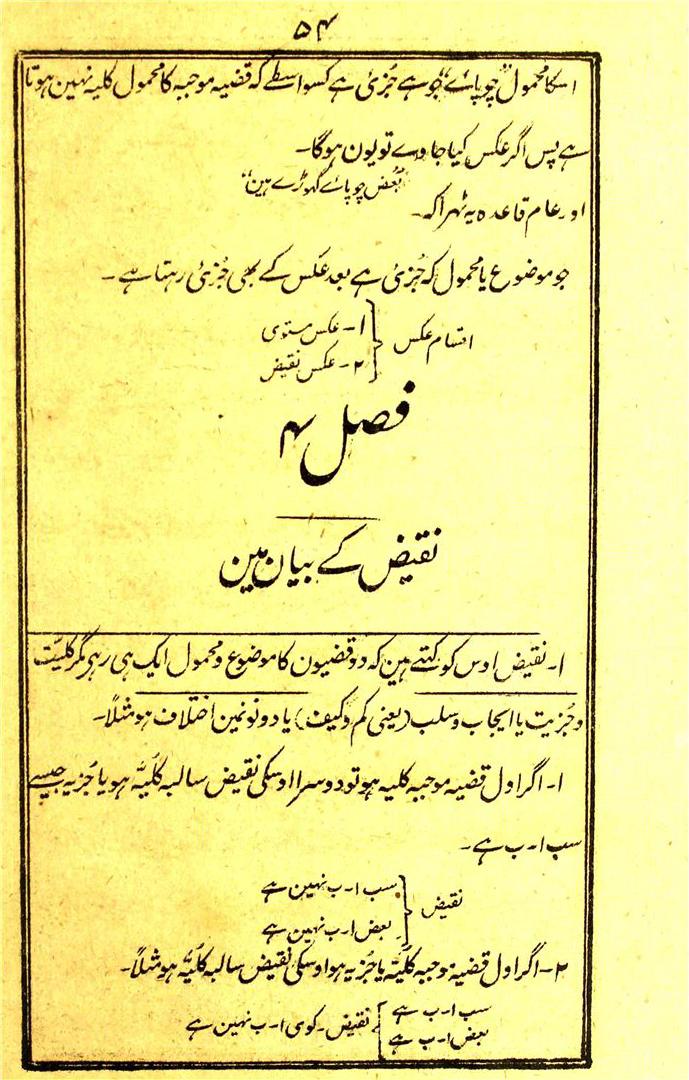 ۵۴
اسکا محمول "چوپائے" جو ہے جُزئی ہے کسواسطے کہ قضیہ موجبہ کا محمول کلیہ نہین ہوتا
ہے پس اگر عکس کیا جاوے تو یون ہوگا۔
"بعض چوپائے گھوڑے ہین"
اور عام قاعدہ یہ ٹہرا کہ۔
جو موضوع یا محمول کہ جُزئی ہے بعد عکس کے بھی جُزئی رہتا ہے۔
اقسام عکس { ۱۔ عکس مستوی
۲۔ عکس نقیض
فصل ۴
نقیض کے بیان مین
۱۔ نقیض اوس کو کہتے ہین کہ دو قضیون کا موضوع و محمول ایک ہی رہے مگر کلیّت
و جُزیت یا ایجاب و سلب (یعنی کم و کیف) یا دونونمین اختلاف ہو مثلاً۔
۱۔ اگر اول قضیہ موجبہ کلیہ ہو تو دوسرا اوسکی نقیض سالبہ کلیّہ ہو یا جُزیہ جیسے
سب ا۔ ب ہے۔
نقیض { سب ا۔ ب نہین ہے
بعض ا۔ ب نہین ہے
۲۔ اگر اول قضیہ موجبہ کلیّہ یا جُزیہ ہو اوسکی نقیض سالبہ کلیّہ ہو مثلاً۔
سب ا۔ ب ہے
بعض ا۔ ب ہے } نقیض۔ کوی ا۔ ب نہین ہے